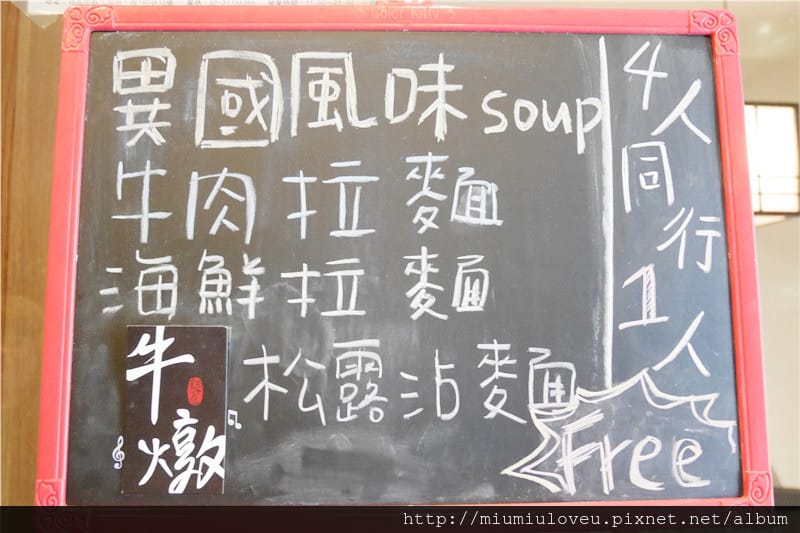 異國風味soup
牛肉拉麵
海鮮拉麵
松露沾麵
4人同行1人
Free
牛燉
http://miumiuloveu.pixnet.net/album